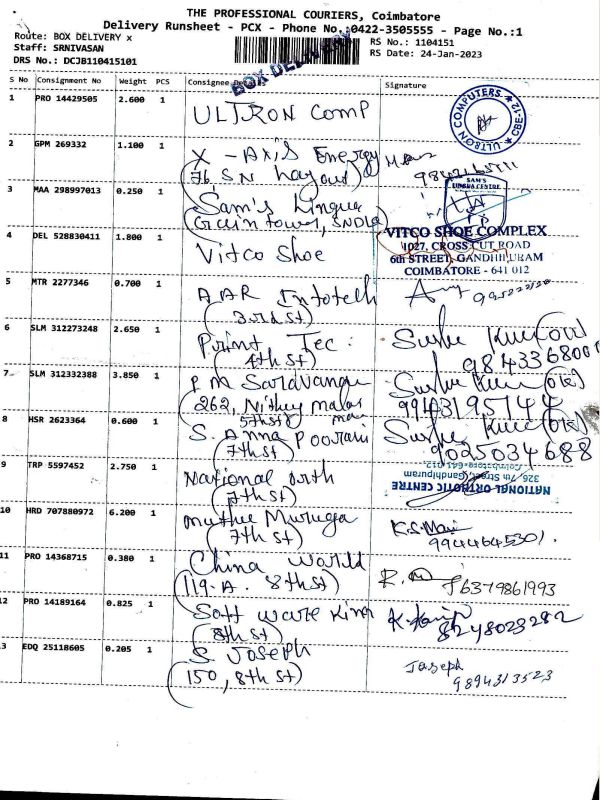 THE PROFESSIONAL COURIERS, Coimbatore
Delivery Runsheet - PCX - Phone No.:0422-3505555 - Page No.:1
Route: BOX DELIVERY x
RS No.: 1104151
Staff: SRNIVASAN
RS Date: 24-Jan-2023
DRS No.: DCJB110415101
BOX DELIVERY
S No Consignment No Weight PCS Consignee Signature
1 PRO 14429505 2.600 1 ULTRON Comp
ULTRON COMPUTERS CBE-12
2 GPM 269332 1.100 1 X - Axis Energy
(76 S N Layout)
3 MAA 298997013 0.250 1 Sam's Lingua
SAM'S
LINGUA CENTRE
4 DEL 528830411 1.800 1 Vitco Shoe
VITCO SHOE COMPLEX
1027, CROSS CUT ROAD
6th STREET, GANDHIPURAM
COIMBATORE - 641 012
5 MTR 2277346 0.700 1 AAR Infotech
(3rd st)
6 SLM 312273248 2.650 1 Print Tec
(4th st)
9843368000
7 SLM 312332388 3.850 1 P M
262,
5th st
8 HSR 2623364 0.600 1 S. Anna Poorani
(7th st)
9025034688
9 TRP 5597452 2.750 1 National orth
(7th st)
NATIONAL ORTHOTIC CENTRE
326, 7th Street, Gandhipuram
Coimbatore-641 012.
10 HRD 707880972 6.200 1 muthu Muruga
(7th st)
K.S.Mani
9944645301
11 PRO 14368715 0.380 1 China World
(119-A. 8th st)
R.
6379861993
12 PRO 14189164 0.825 1 Soft ware King
(8th st)
8248023292
3 EDQ 25118605 0.205 1 S. Joseph
(150, 8th st)
Joseph
9894313523